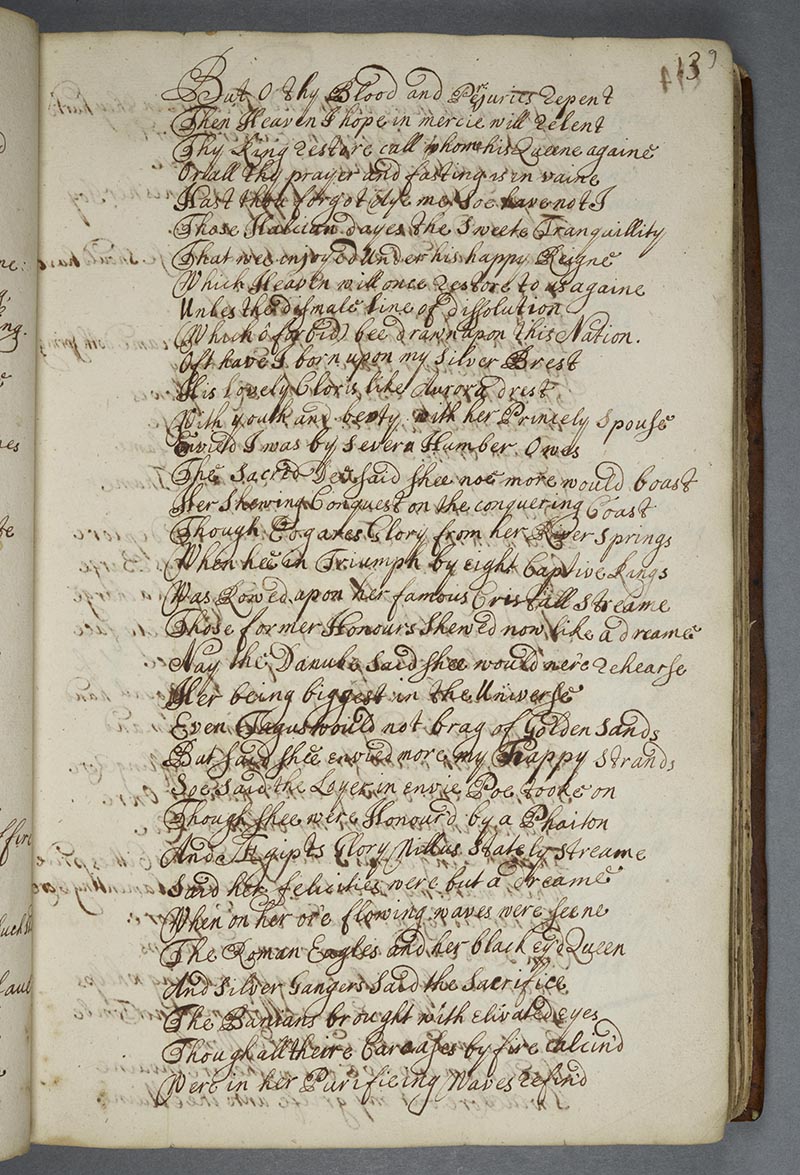 139
But O thy Blood and Perjuries Repent
Then Heaven I hope in mercie will Relent
Thy King Restore call whom his Queene againe
Or all thy prayer and fasting is in vaine
Hast thou forgot Aye me soe have not I
Those Halcian dayes the Sweete Tranquillity
That wee injoyed under his happy Reigne
Which Heaven will once Restore to us againe
Unles the dismale line of dissolution
(Which ô forbid) bee drawn upon this Nation.
Oft have I born upon my Silver Brest
His lovely Cloris like Aurora drest
With youth and bevty with her Princely Spouse
Envied I was by Severn Humber Owes
The Sacred Dee said shee noe more would boast
Her Shewing Conquest on the conquering Coast
Though Edgares Glory from her River Springs
When hee in Triumph by eight Captive Kings
Was Rowed upon her famous Cristall Streame
Those former Honours Shewed now like a dreame
Nay the Danube said shee would ne're Rehearse
Her being biggest in the Universe
Even Tagus would not brag of Golden Sands
But said shee envied more my Happy Strands
Soe said the Loyer in envie Poe tooke on
Though shee were Honour'd by a Phaiton
And Ægipts Glory Nillus Stately Streame
Said her felicities were but a dreame
When on her ore flowing waves were seene
The Roman Eagles and her black ey'd Queen
And Silver Ganges Said the Sacrifice
The Banians brought with elivated eyes
Though all theire Carcases by fire calcin'd
Were in her Purifieing Waves refin'd